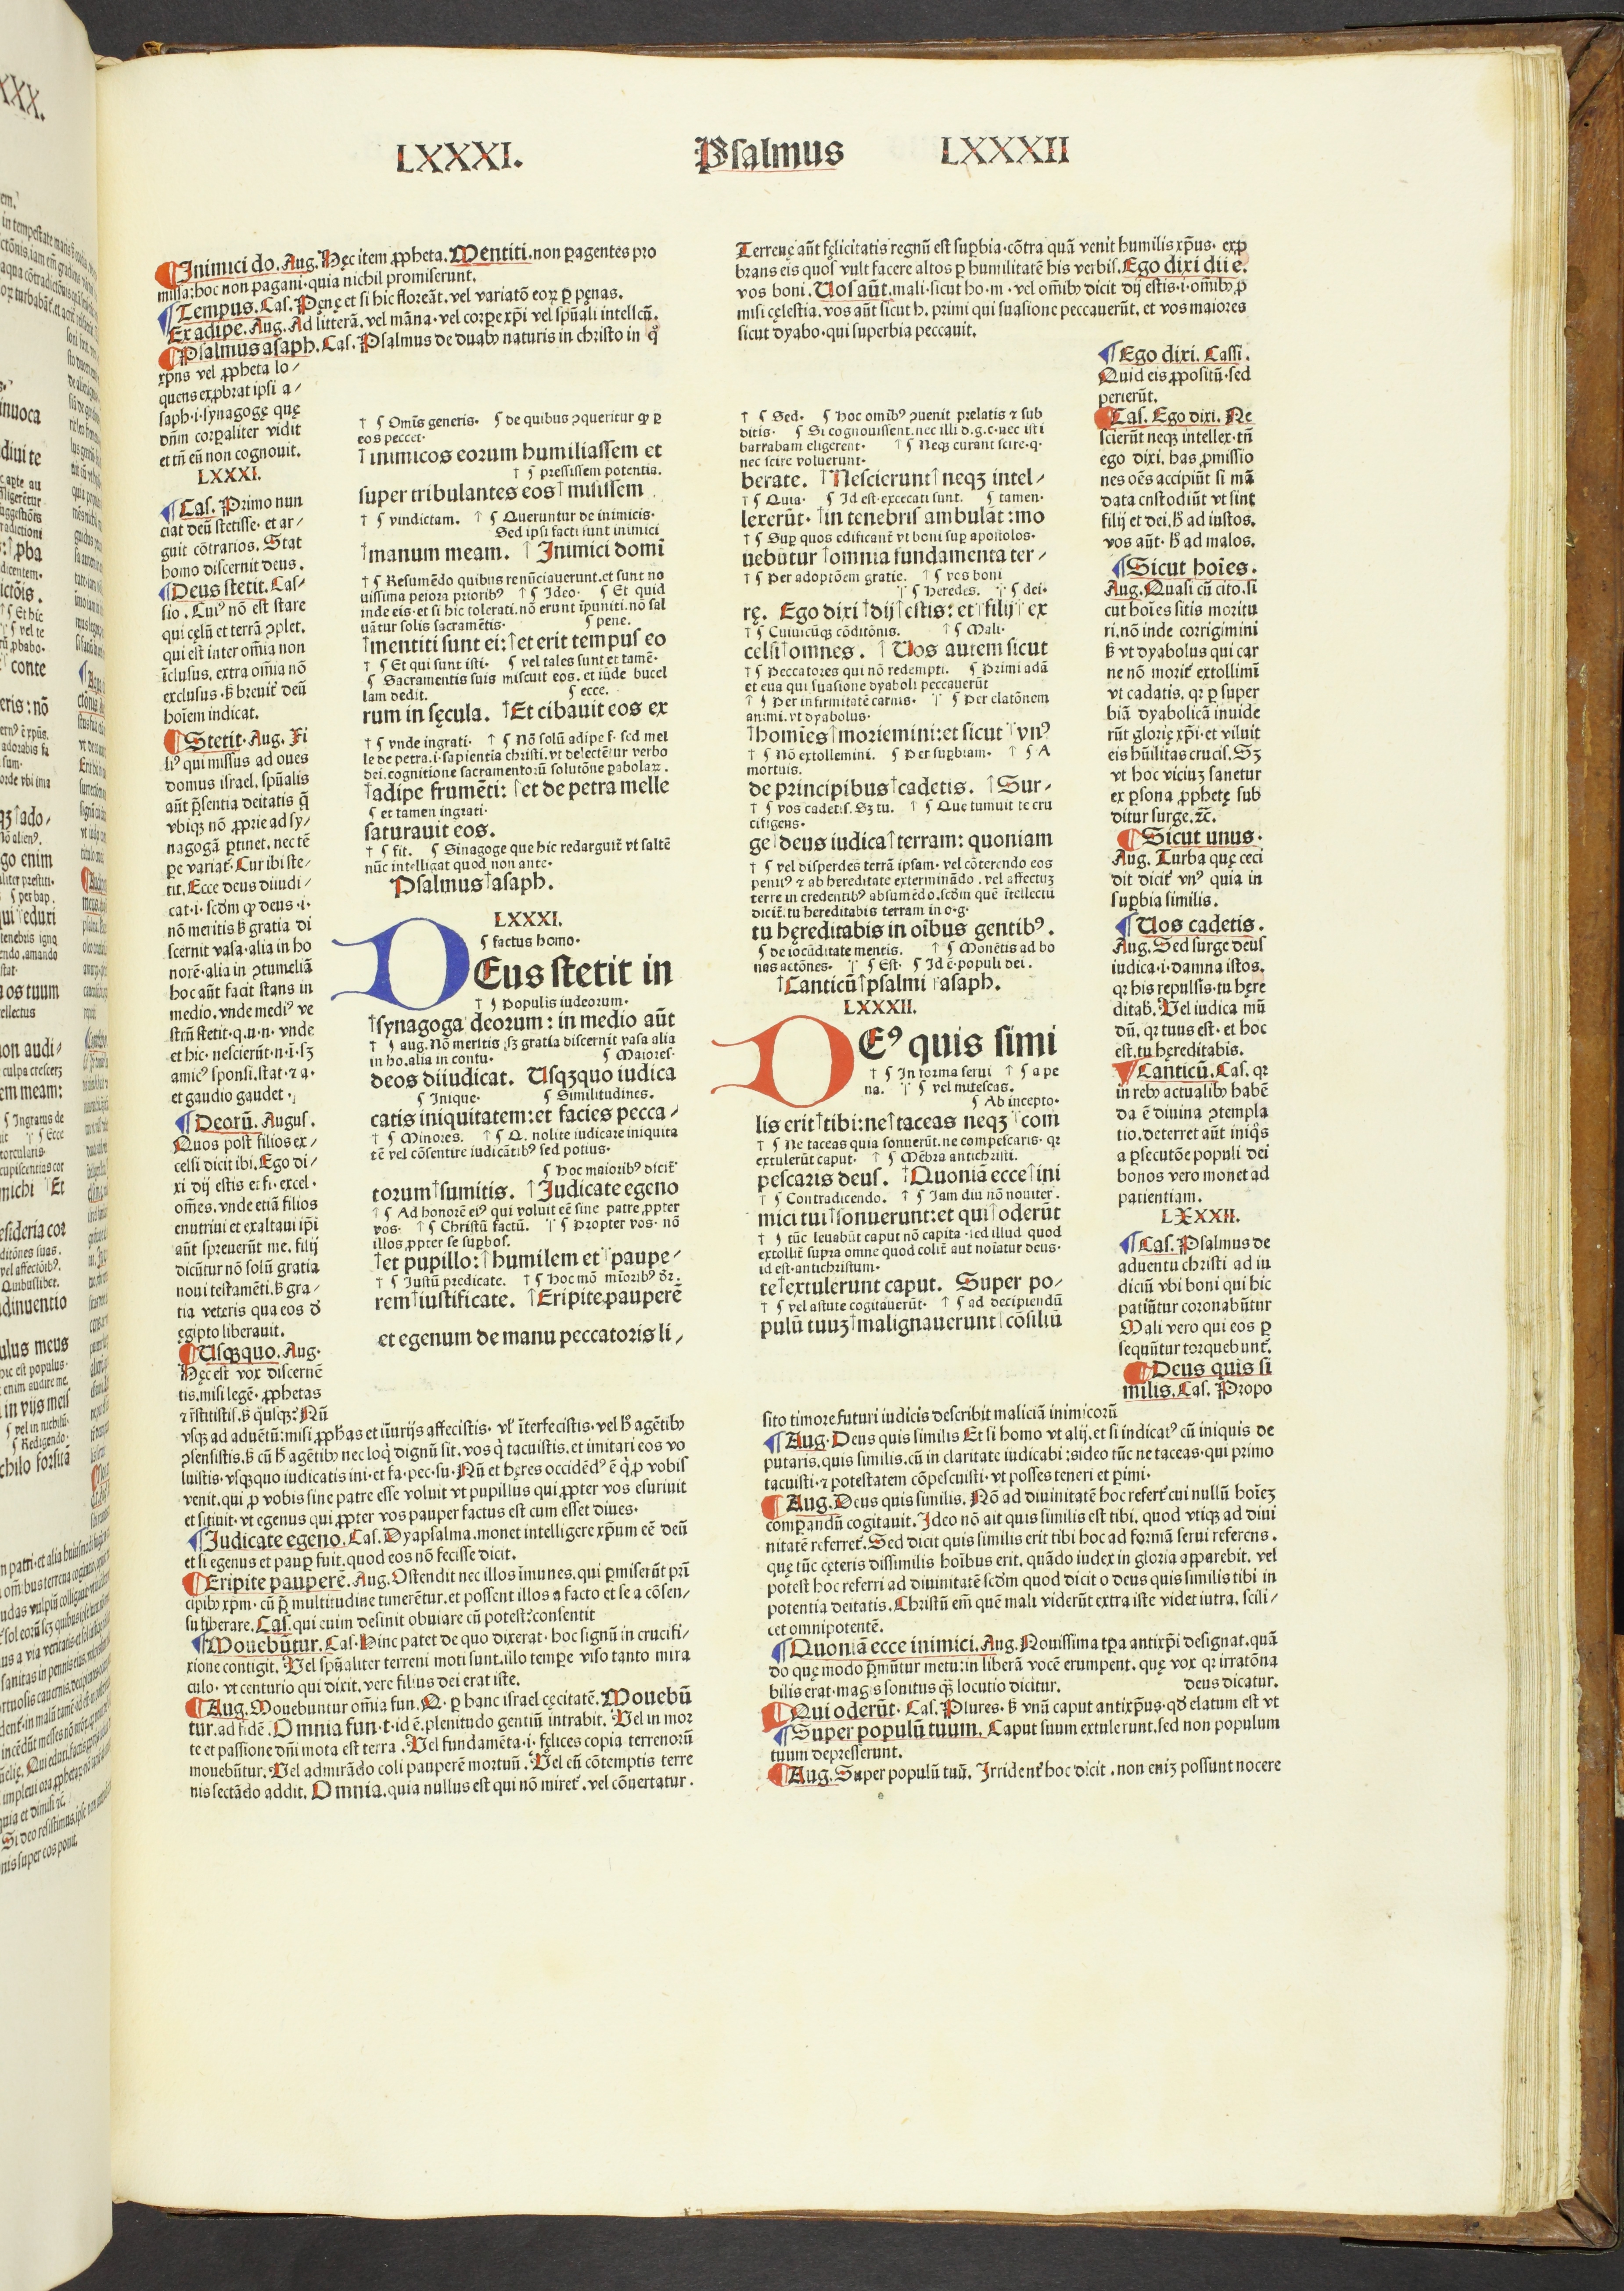 LXXXI. Psalmus LXXXII
¶Inimici do. Aug. Hęc item ꝓpheta. Mentiti. non ꝑagentes pro
missa: hoc non pagani· quia nichil promiserunt.
¶Tempus. Cas. Penę et si hic floreāt. vel variatō eoꝝ ꝑ pęnas.
Ex adipe. Aug. Ad litterā. vel māna· vel corꝑe xp̄i vel spūali intellcū.
¶Psalmus asaph. Cas. Psalmus de duabꝫ naturis in christo in q̊
xp̄ns vel ꝓpheta lo/
quens exꝓbrat ipsi a/
saph·i·synagogę quę
dn̄m corꝑaliter vidit
et tn̄ eū non cognouit.
LXXXI.
¶Cas. Primo nun
ciat deū stetisse· et ar/
guit cōtrarios. Stat
homo discernit deus.
¶Deus stetit. Cas/
sio. Cuiꝰ nō est stare
qui cęlū et terrā ꝯplet.
qui est inter om̄ia non
īclusus, extra om̄ia nō
exclusus. ꝸ breuit᷑ deū
hoīem indicat.
¶Stetit. Aug. Fi
liꝰ qui missus ad oues
domus israel. spūalis
aūt p̄sentia deitatis q̄
vbiqꝫ nō ꝓprie ad sy/
nagogā ꝑtinet. nec tē
ꝑe variat᷑. Cur ibi ste/
tit. Ecce deus diiudi/
cat·i· scdm̄ ꝙ deus·i·
nō meritis ꝸ gratia di
scernit vasa· alia in ho
norē· alia in ꝯtumeliā
hoc aūt facit stans in
medio. vnde mediꝰ ve
strū stetit·q.u.n· vnde
et hic· nescierūt·n·i·sꝫ
amicꝰ sponsi. stat· ⁊ a·
et gaudio gaudet.
¶Deorū. Augus.
Quos post filios ex/
celsi dicit ibi. Ego di/
xi dij estis et·fi·excel.
om̄es. vnde etiā filios
enutriui et exaltaui ip̄i
aūt spreuerūt me. filij
dicūtur nō solū gratia
noui testamēti. ꝸ gra/
tia veteris qua eos ꝺ
egipto liberauit.
¶Usqꝫquo. Aug.
Hęc est vox discernē
tis. misi legē· ꝓphetas
⁊ r̄stitistis. ꝸ q̊usqꝫ? Nū
vsqꝫ ad aduētū: misi ꝓphas et iūurijs affecistis· vl᷑ īterfecistis· vel h̄ agētibꝫ
ꝯsensistis. ꝸ cū h̄ agētibꝫ nec loq̇ dignū sit. vos q̇ tacuistis. et imitari eos vo
luistis· vsqꝫquo iudicatis ini· et fa·pec·su· Nū et hęres occidēdꝰ ē q̇ ꝓ vobis
venit. qui ꝓ vobis sine patre esse voluit vt pupillus qui ꝓpter vos esuriuit
et sitiuit· vt egenus qui ꝓpter vos pauper factus est cum esset diues.
¶Judicate egeno. Cas. Dyapsalma. monet intelligere xp̄um eē deū
et si egenus et pauꝑ fuit. quod eos nō fecisse dicit.
¶Eripite pauperē. Aug. Ostendit nec illos īmunes. qui ꝑmiserūt pri
cipibꝫ xp̄m· cū p̄ multitudine timerētur. et possent illos a facto et se a cōsen/
su liberare. Cas. qui cuim desinit obuiare cū potest: consentit
¶Mouebūtur. Cas. Hinc patet de quo dixerat· hoc signū in crucifi/
xione contigit. Vel spūaliter terreni moti sunt. illo tempe viso tanto mira
culo· vt centurio qui dixit. vere filius dei erat iste.
¶Aug. Mouebuntur om̄ia fun. Q. ꝑ hanc israel cęcitatē. Mouebū
tur. ad fidē. Omnia fun·t·id ē. plenitudo gentiū intrabit. Vel in mor
te et passione dn̄i mota est terra. Vel fundamēta·i·fęlices copia terrenorū
mouebūtur. Vel admirādo coli pauperē mortuū. Vel eū cōtemptis terre
nis sectādo addit. Omnia. quia nullus est qui nō miret᷑. vel cōuertatur.
† ¶ Om̄is generis. ¶ de quibus ꝯqueritur ꝙ ꝑ
eos peccet·
†inimicos eorum humiliassem et
† ¶ pressissem potentia.
super tribulantes eos† misissem
† ¶ vindictam. † ¶ Queruntur de inimicis·
Sed ipsi facti sunt inimici
†manum meam. † Inimici domī
† ¶ Resumēdo quibus renūciauerunt. et sunt no
uissima peiora prioribꝰ † ¶ Ideo· ¶ Et quid
inde eis· et si hic tolerati. nō erunt īpuniti. nō sal
uātur solis sacramētis· ¶ pene.
†mentiti sunt ei: †et erit tempus eo
† ¶ Et qui sunt isti. ¶ vel tales sunt et tamē·
¶ Sacramentis suis miscuit eos. et inde bucel
lam dedit. ¶ ecce.
rum in sęcula. †Et cibauit eos ex
† ¶ vnde ingrati· † ¶ Nō solū adipe f· sed mel
le de petra. i· sapientia christi. vt delectētur verbo
dei. cognitione sacramentorū solutōne ꝑabolaꝝ.
†adipe frumēti: †et de petra melle
¶ et tamen ingrati·
saturauit eos.
† ¶ fit. ¶ Sinagoge que hic redarguit᷑ vt saltē
nūc intelligat quod non ante·
Psalmus†asaph.
LXXXI.
¶ factus homo·
DEus stetit in
† ¶ Populis iudeorum·
†synagoga deorum: in medio aūt
† ¶ aug. Nō meritis ; sꝫ gratia discernit vasa alia
in ho. alia in contu· ¶ Maiores·
deos diiudicat. Usqꝫquo iudica
¶ Inique· ¶ Similitudines.
catis iniquitatem: et facies pecca/
† ¶ Minores. † ¶ Q. nolite iudicare iniquita
tē vel cōsentire iudicātibꝰ sed potius·
¶ Hoc maioribꝰ dicit᷑
torum†sumitis. †Judicate egeno
† ¶ Ad honorē eiꝰ qui voluit eē sine patre ꝓpter
vos· † ¶ Christū factū. † ¶ Propter vos· nō
illos ꝓpter se suꝑbos.
†et pupillo: †humilem et †paupe/
† ¶ Justū predicate. † ¶ Hoc mō mīoribꝰ dr̄.
rem†iustificate. †Eripite pauperē
et egenum de manu peccatoris li/
Terrenę aūt fęlicitatis regnū est suꝑbia· cōtra quā venit humilis xp̄us· exꝓ
brans eis quos vult facere altos ꝑ humilitatē his verbis. Ego dixi dii e.
vos boni. Uos aūt. mali· sicut ho·m· vel om̄ibꝫ dicit dij estis·i·om̄ibꝫ ꝓ
misi cęlestia. vos aūt sicut h. primi qui suasione peccauerūt. et vos maiores
sicut dyabo· qui superbia peccauit.
† ¶ Sed. ¶ Hoc omibꝰ ꝯuenit prelatis ⁊ sub
ditis. ¶ Si cognouissent. nec illi d.g.c· nec isti
barrabam eligerent· † ¶ Neqꝫ curant scire·q·
nec scire voluerunt·
berate. †Nescierunt†neqꝫ intel/
† ¶ Quia· ¶ Id est· excecati sunt. ¶ tamen·
lexerūt· †in tenebris ambulāt: mo
† ¶ Suꝑ quos edificant᷑ vt boni suꝑ apostolos·
uebūtur †omnia fundamenta ter/
† ¶ Per adoptōem gratie. † ¶ vos boni
¶ Heredes. † ¶ dei·
rę. Ego dixi †dij†estis: et†filij† ex
† ¶ Cuiuscūqꝫ cōditōnis. † ¶ Mali·
celsi†omnes. † Uos autem sicut
† ¶ Peccatores qui nō redempti. ¶ Primi adā
et eua qui suasione dyaboli peccauerūt
† ¶ Per infirmitatē carnis· † ¶ Per elatōnem
animi. vt dyabolus·
†homies†moriemini: et sicut †vnꝰ
† ¶ Nō extollemini. ¶ Per suꝑbiam· † ¶ A
mortuis.
de principibus†cadetis. †Sur/
† ¶ vos cadetis. Sꝫ tu. † ¶ Que tumuit te cru
cifigens·
ge†deus iudica†terram: quoniam
† ¶ vel disperdes terrā ipsam· vel cōterendo eos
penitꝰ ⁊ ab hereditate exterminādo. vel affectuꝫ
terre in credentibꝰ absumēdo. scdm̄ quē ītellectū
dicit᷑. tu hereditabis terram in o·g·
tu hęreditabis in oībus gentibꝰ.
¶ de iocūditate mentis. † ¶ Monētis ad bo
nas actōnes· † ¶ Est· ¶ Id ē· populi dei.
†Canticū†psalmi †asaph.
LXXXII.
DEꝰ quis simi
† ¶ In forma serui † ¶ a pe
na. † ¶ vel mitescas.
¶ Ab incepto·
lis erit†tibi: ne†taceas neqꝫ †com
† ¶ Ne taceas quia sonuerūt. ne compescaris· qꝛ
extulerūt caput· † ¶ Mēbra antichristi.
pescaris deus. †Quoniā ecce†ini
† ¶ Contradicendo. † ¶ Iam diu nō nouiter.
mici tui†sonuerunt: et qui†oderūt
† ¶ tūc leuabūt caput nō capita· sed illud quod
extollit᷑ supra omne quod colit᷑ aut noīatur deus·
id est· antichristum·
te†extulerunt caput. Super po/
† ¶ vel astute cogitauerūt· † ¶ ad decipiendū
pulū tuuꝫ†malignauerunt†cōsiliū
¶Ego dixi. Cassi.
Quid eis ꝓpositū· sed
perierūt.
¶Cas. Ego dixi. Ne
scierūt neqꝫ intellex· tn̄
ego dixi. has ꝓmissio
nes oēs accipiūt si mā
data cnstodiūt vt sint
filij et dei. h̄ ad iustos.
vos aūt· h̄ ad malos.
¶Sicut hoīes.
Aug. Quasi cū cito. si
cut hoīes sitis moritu
ri. nō inde corrigimini
ꝸ vt dyabolus qui car
ne nō morit᷑ extollimī
vt cadatis. qꝛ ꝑ super
biā dyabolicā inuide
rūt glorię xp̄i· et viluit
eis hūilitas crucis. Sꝫ
vt hoc viciuꝫ sanetur
ex ꝑsona ꝓphetę sub
ditur surge. ⁊c̄.
¶Sicut unus.
Aug. Turba quę ceci
dit dicit᷑ vnꝰ quia in
suꝑbia similis.
¶Uos cadetis.
Aug. Sed surge deus
iudica·i·damna istos.
qꝛ his repulsis· tu hęre
ditab. Vel iudica mū
dū. qꝛ tuus est· et hoc
est. tu hęreditabis.
¶Canticū. Cas. qꝛ
in rebꝫ actualibꝫ habē
da ē diuina ꝯtempla
tio. deterret aūt iniq̊s
a ꝑsecutōe populi dei
bonos vero monet ad
patientiam.
LXXXII.
¶Cas. Psalmus de
aduentu christi ad iu
diciū vbi boni qui hic
patiūtur coronabūtur
Mali vero qui eos ꝑ
sequūtur torquebunt᷑.
¶Deus quis si
milis. Cas. Propo
sito timore futuri iudicis describit maliciā inimicorū
¶Aug. Deus quis similis Et si homo vt alij. et si indicatꝰ cū iniquis de
putaris. quis similis. cū in claritate iudicabi: sideo tūc ne taceas· qui primo
tacuisti· ⁊ potestatem cōpescuisti· vt posses teneri et ꝑimi·
¶Aug. Deus quis similis. Nō ad diuinitatē hoc refert᷑ cui nullū hoīeꝫ
comꝑandū cogitauit. Ideo nō ait quis similis est tibi. quod vtiqꝫ ad diui
nitatē referret᷑. Sed dicit quis similis erit tibi hoc ad formā serui referens.
quę tūc cęteris dissimilis hoībus erit. quādo iudex in gloria apparebit. vel
potest hoc referri ad diuinitatē scdm̄ quod dicit o deus quis similis tibi in
potentia deitatis. Christū em̄ quē mali viderūt extra iste videt iutra. scili/
cet omnipotentē.
¶Quoniā ecce inimici. Aug. Nouissima tꝑa antixp̄i designat. quā
do quę modo p̄mūtur metu: in liberā vocē erumpent. quę vox qꝛ irratōna
bilis erat· magis sonitus q̄ꝫ locutio dicitur. deus dicatur.
¶Qui oderūt. Cas. Plures. ꝸ vnū caput antixp̄us· qd̄ elatum est vt
¶Super populū tuum. Caput suum extulerunt. sed non populum
tuum depresserunt.
¶Aug. Super populū tuū. Irrident᷑ hoc dicit. non eniꝫ possunt nocere